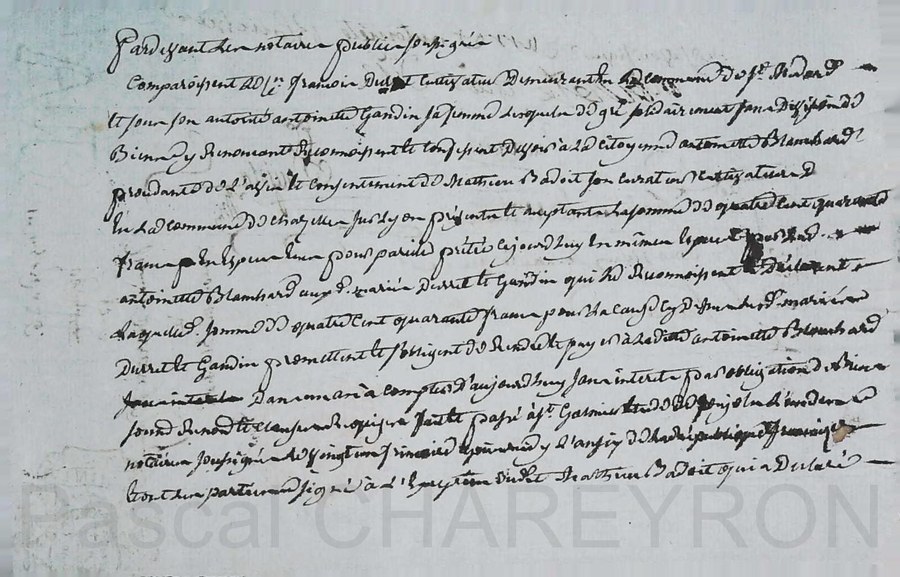 Pardevant les notaires publics soussignés
Comparoissent le Cn francois Durret cultivateur demeurant en la commune de st. Medard
et sous son autorité antoinette Gandin sa femme lesquels de gré solidairement sans division de
Biens y Renonçant Reconnoissent et Confessent devoir à la citoyenne antoinette Blanchard
procédante de l'avis et consentement de Mathieu Badoit son curateur cultivateur
en la commune de chazelles sur Lyon présente et acceptante la somme de quatre cent quarante
francs En Espèces pour pareille prêtée cejourd'huy En mêmes Espèces par lad.
antoinette Blanchard aux d. mariés Durret et Gandin qui le Reconnoissent et déclarent
Laquelle d. somme de quatre cent quarante francs pour la cause cy dessus les d. mariés
Durret et Gandin promettent et s'obligent de Rendre et payer à Ladite antoinette Blanchard
Dans un an à compter d'aujourd'huy sans interets par obligation de Biens
soumd. Renond. et clauses Requises fait et passé à st Galmier
notaires soussignés Le vingt un frimaire l'an six de La République française
et ont les parties signé à L'Exception dudit Mathieu Badoit qui a Déclaré
Pascal CHAREYRON